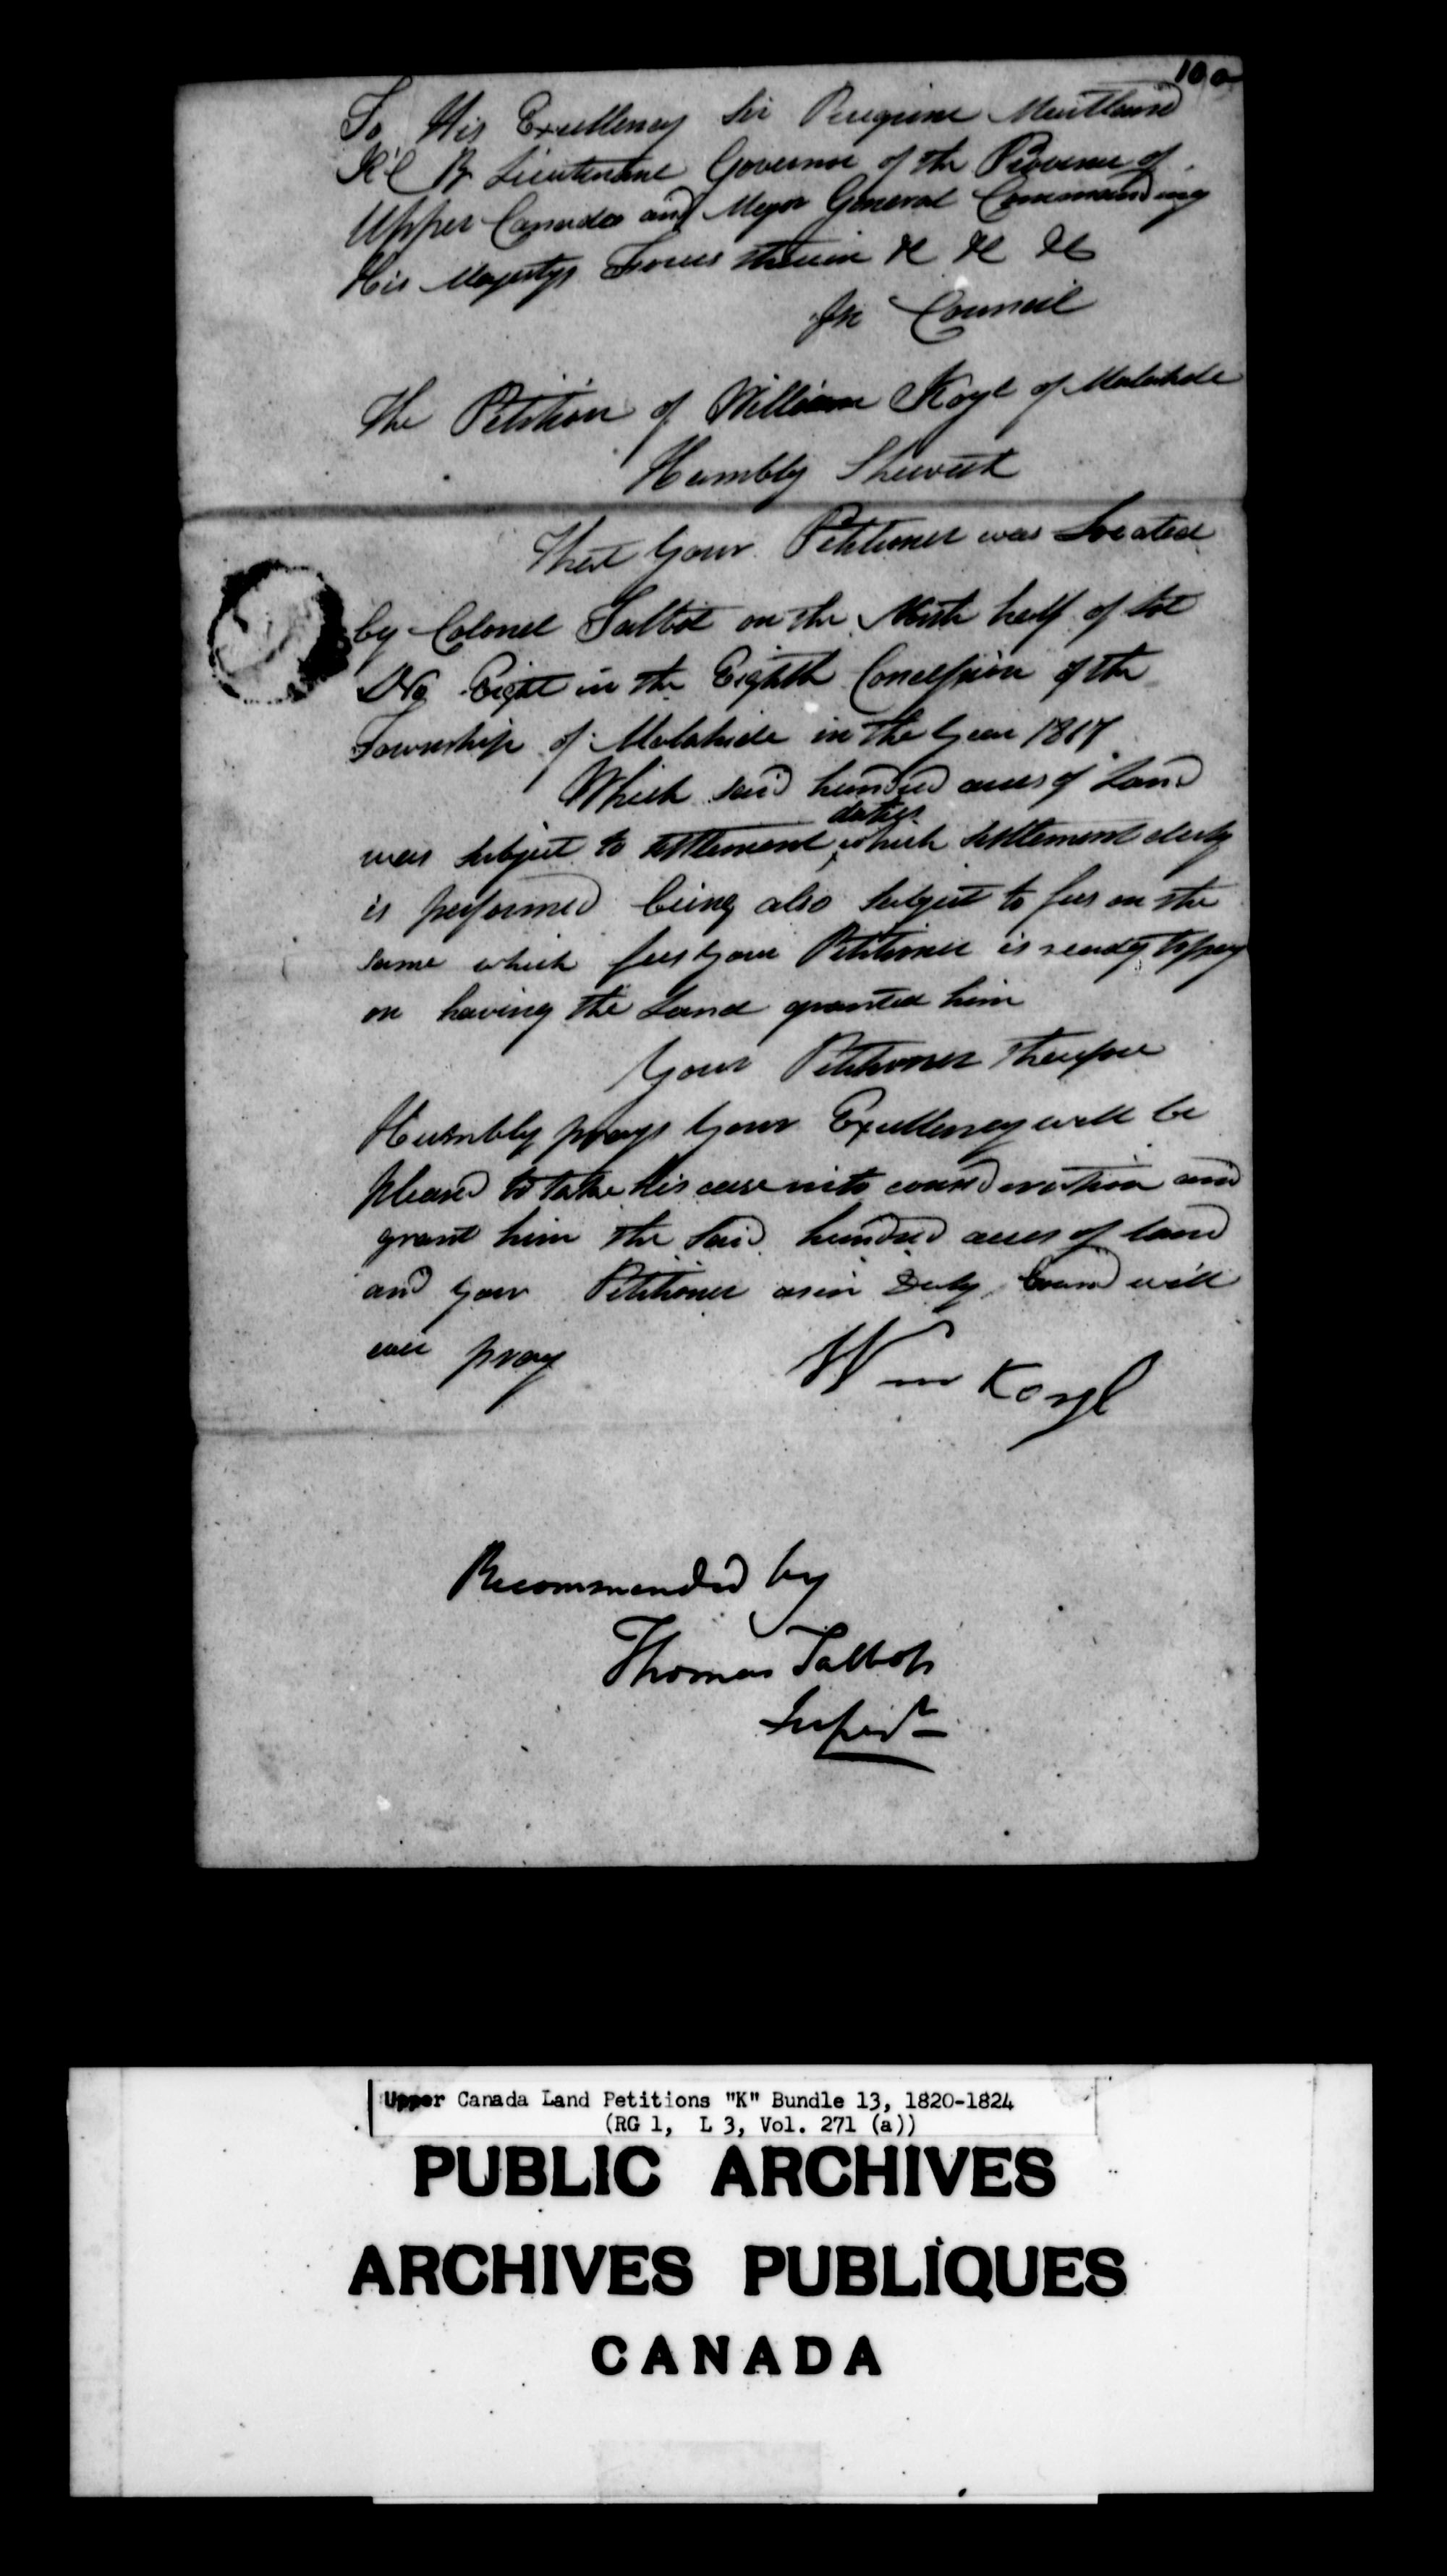 10a
To His Excellency Sir Peregrine Maitland
K C B Lieutenant Governor of the Province of
Upper Canada and Major General Commanding
His Majestys Forces therein &c &c &c
In Council
The Petition of William Koyl of Malahide
Humbly Sheweth
That Your Petitioner was Located
by Colonel Talbot on the North half of lot
No Eight in the Eighth Concession of the
Township of Malahide in the Year 1817
Which said hundred acres of Land
duties
was subject to settlement which settlement duty
is performed being also subject to fees on the
same which fees your Petitioner is ready to pay
on having the Land granted him
Your Petitioner Therefore
Humbly prays Your Excellency will be
pleased to take his case into consideration and
grant him the said hundred acres of land
and your Petitioner as in Duty bound will
ever pray
Wm Koyl
Recommended by
Thomas Talbot
Upper Canada Land Petitions "K" Bundle 13, 1820-1824
(RG 1, L 3, Vol. 271 (a))
PUBLIC ARCHIVES
ARCHIVES PUBLIQUES
CANADA